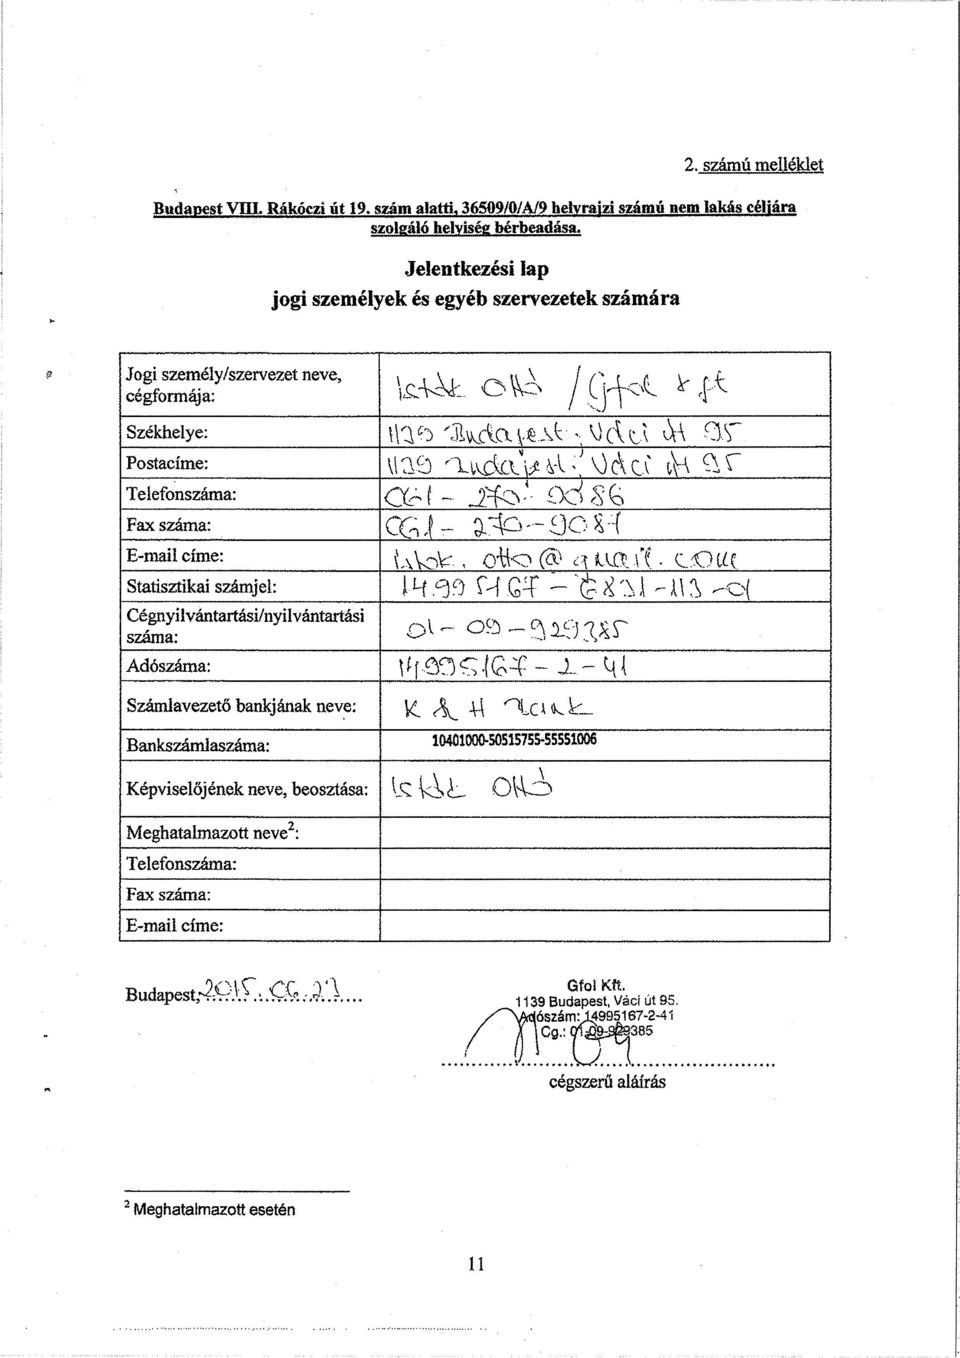 2. számú melléklet
Budapest VIII. Rákóczi út 19. szám alatti, 36509/0/A/9 helyrajzi számú nem lakás céljára
szolgáló helyiség bérbeadása.
Jelentkezési lap
jogi személyek és egyéb szervezetek számára
Jogi személy/szervezet neve,
cégformája:
Ottó / Gfol Kft
Székhelye: 1139 Budapest, Váci út 95
Postacíme: 1139 Budapest, Váci út 95
Telefonszáma: 061 - 270 -
Fax száma: 061 - 270 - 9087
E-mail címe: otto@gmail.com
Statisztikai számjel: 14995167 - 6831 - 113 - 01
Cégnyilvántartási/nyilvántartási
száma:
01 - 09 - 929385
Adószáma: 14995167 - 2 - 41
Számlavezető bankjának neve: K & H Bank
Bankszámlaszáma: 10401000-50515755-55551006
Képviselőjének neve, beosztása: Ottó
Meghatalmazott neve2:
Telefonszáma:
Fax száma:
E-mail címe:
Budapest, 2015. 06.
Gfol Kft.
1139 Budapest, Váci út 95.
Adószám: 14995167-2-41
Cg.: 01-09-929385
cégszerű aláírás
2 Meghatalmazott esetén
11